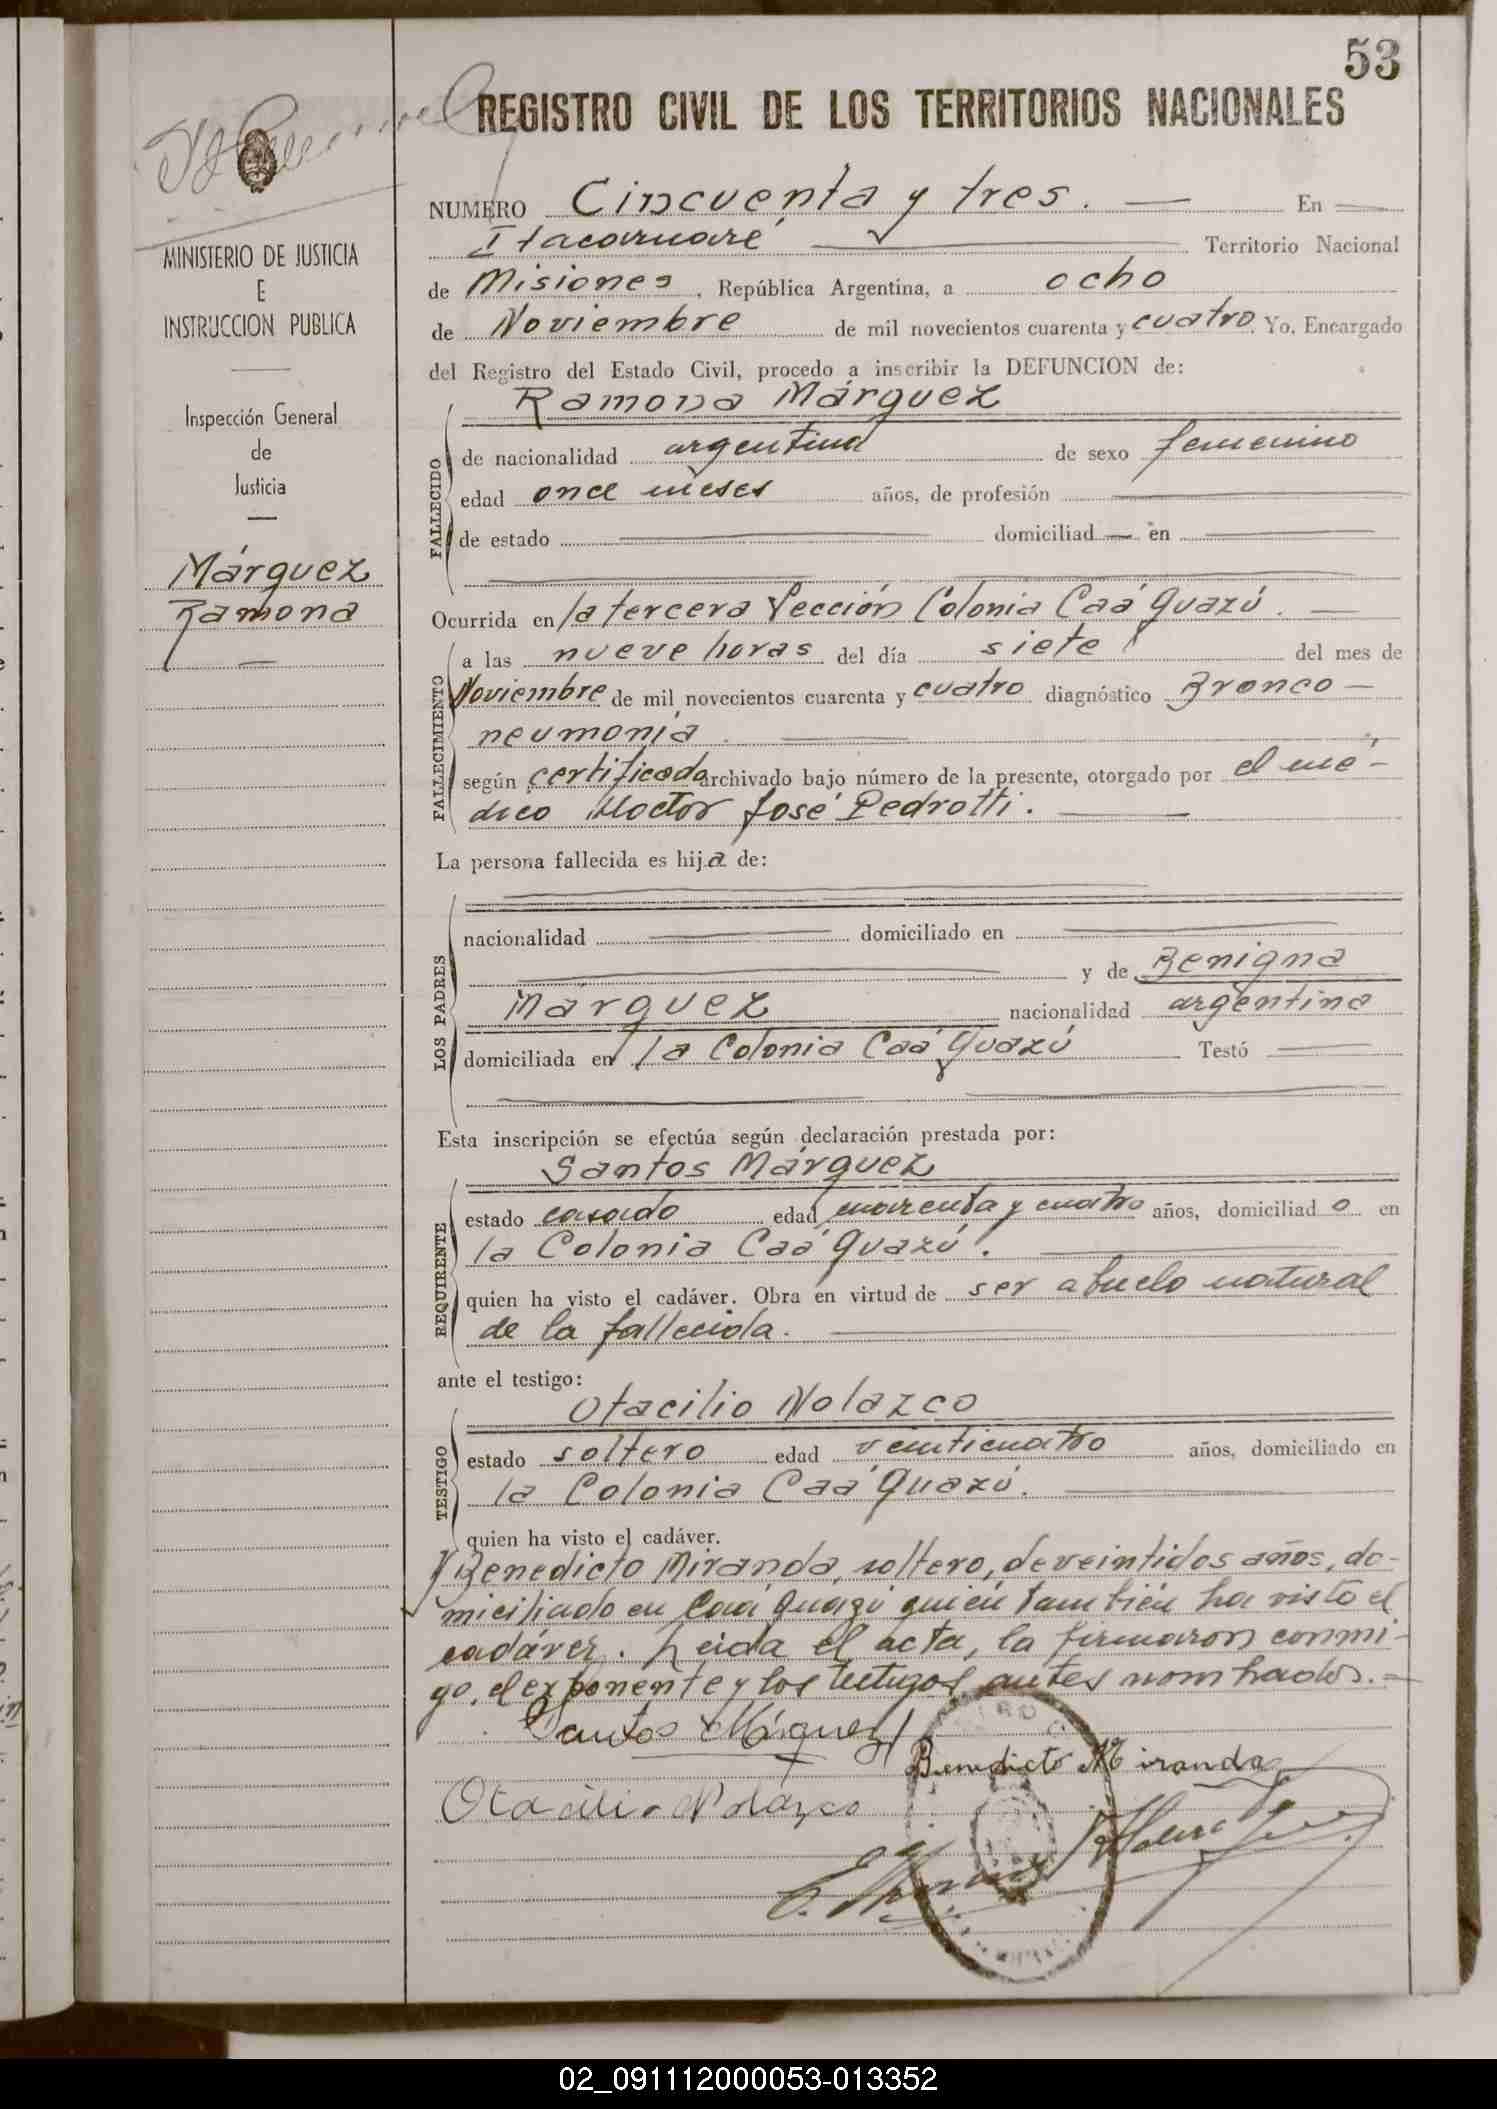 53
REGISTRO CIVIL DE LOS TERRITORIOS NACIONALES
MINISTERIO DE JUSTICIA
E
INSTRUCCION PUBLICA
Inspección General
de
Justicia
Márquez
Ramona
NUMERO Cincuenta y tres. En
Itacaruaré Territorio Nacional
de Misiones, República Argentina, a ocho
de Noviembre de mil novecientos cuarenta y cuatro. Yo, Encargado
del Registro del Estado Civil, procedo a inscribir la DEFUNCION de:
Ramona Márquez
FALLECIDO
de nacionalidad argentina de sexo femenino
edad once meses años, de profesión
de estado domiciliad en
Ocurrida en la tercera Sección Colonia Caá Guazú.
FALLECIMIENTO
a las nueve horas del día siete del mes de
Noviembre de mil novecientos cuarenta y cuatro diagnóstico Bronco-
neumonia
según certificado archivado bajo número de la presente, otorgado por el mé-
dico Doctor José Pedrotti.
La persona fallecida es hija de:
LOS PADRES
nacionalidad domiciliado en
y de Benigna
Márquez nacionalidad argentina
domiciliada en la Colonia Caá Guazú Testó
Esta inscripción se efectúa según declaración prestada por:
Santos Márquez
REQUIRENTE
estado casado edad cuarenta y cuatro años, domiciliado en
la Colonia Caá Guazú.
quien ha visto el cadáver. Obra en virtud de ser abuelo natural
de la fallecida.
ante el testigo:
Otacilio Nolazco
TESTIGO
estado soltero edad veinticuatro años, domiciliado en
la Colonia Caá Guazú.
quien ha visto el cadáver.
y Benedicto Miranda, soltero, de veintidos años, do-
miciliado en Caá Guazú quién también ha visto el
cadáver. Leida el acta, la firmaron conmi-
go, el exponente y los testigos antes nombrados.=
Santos Márquez
Benedicto Miranda
Otacilio Nolazco
02_091112000053-013352